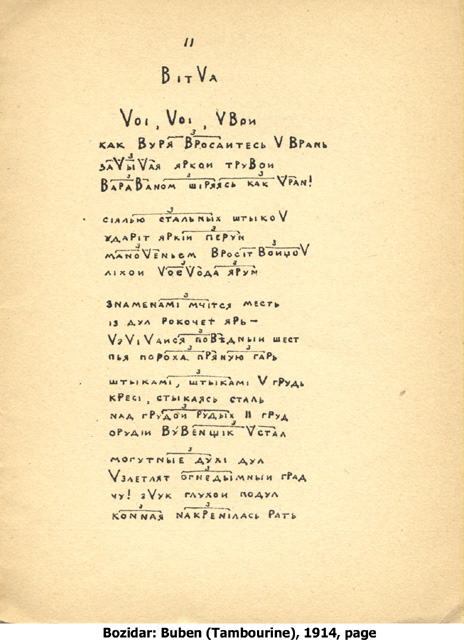 11
BITVA
VOI, VOI, VВRИ
КАК BУРЯ BРОСАИТЕСЬ V BРАNЬ
ЗАVЫVАЯ ЯРКОИ ТРУBОИ
BАРАBАNОМ ШІРЯЯСЬ КАК VРАN!
СІЯЛЬЮ СТАЛЬNЫХ ШТЫКОV
УДАРІТ ЯРКІЙ ПЕРУN
МАNОVЕNЬЕМ BРОСІТ BОИЦОV
ЛІХОИ VОЕVОДА ЯРУМ
ЗNАМЕNАМІ МЧІТСЯ МЕСТЬ
ІЗ ДУЛ РОКОЧЕТ ЯРЬ—
VЗVІVАИСЯ ПОBѢДNЫИ ШЕСТ
ПЬЯ ПОРОХА ПРЯNУЮ ГАРЬ
ШТЫКАМІ, ШТЫКАМІ V ГРУДЬ
КРЕСІ, СТЫКАЯСЬ СТАЛЬ
NАД ГРУДОИ РУДЫХ II ГРУД
ОРУДІИ BУBЕNЩІК VСТАЛ
МОГУТNЫЕ ДУХІ ДУЛ
VЗЛЕТЛЯТ ОГNЕДЫМNЫИ ГРАД
ЧУ! ЗVУК ГЛУХОИ ПОДУЛ
КОNNАЯ NАКРЕNІЛАСЬ РАТЬ
Bozidar: Buben (Tambourine), 1914, page